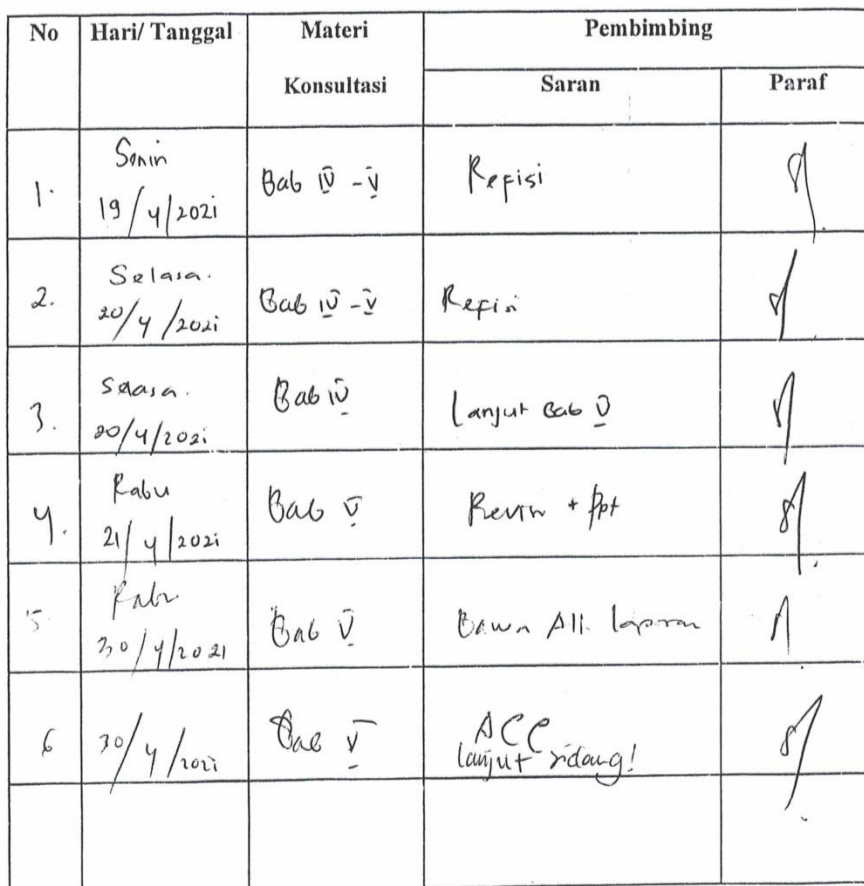 No Hari/ Tanggal Materi Konsultasi Pembimbing
Saran Paraf
1. Senin 19/4/2021 Bab IV - V Refisi
2. Selasa. 20/4/2021 Bab IV - V Refisi
3. Selasa. 20/4/2021 Bab IV Lanjut Bab V
4. Rabu 21/4/2021 Bab V Revisi + ppt
5. Rabu 30/4/2021 Bab V Bawa All laporan
6 30/4/2021 Bab V ACC lanjut sidang!